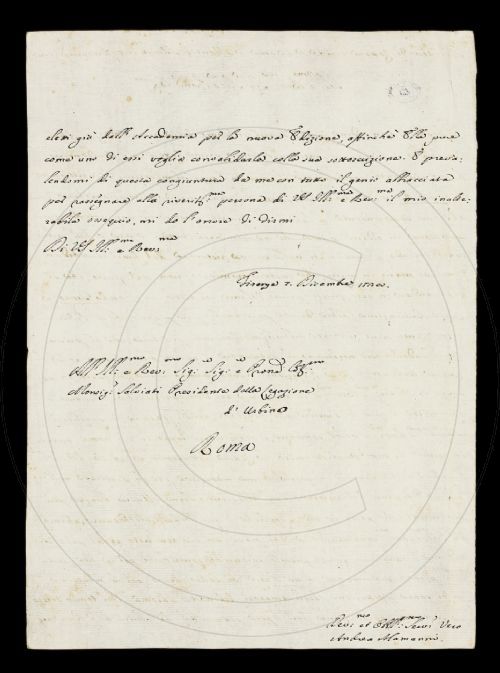 eletti già dall' Accademia per la nuova Edizione, affinchè Ella pure
come uno di essi voglia convalidarla colla sua sottoscrizione. E preva-
lendomi di questa congiuntura da me con tutto il genio abbracciata
per rassegnare alla riverit.ma persona di VS Ill.ma e Rev.ma il mio inalte-
rabile ossequio, mi do l'onore di dirmi
Di VS Ill.ma e Rev.ma
Firenze 7. Dicembre
Ill.mo e Rev.mo Sig.r Sig.r e Pron.
Monsig.r Salviati Presidente della Legazione
d' Urbino
Roma
Dev.mo et Obbl.mo Serv.r Vero
Andrea Alamanni